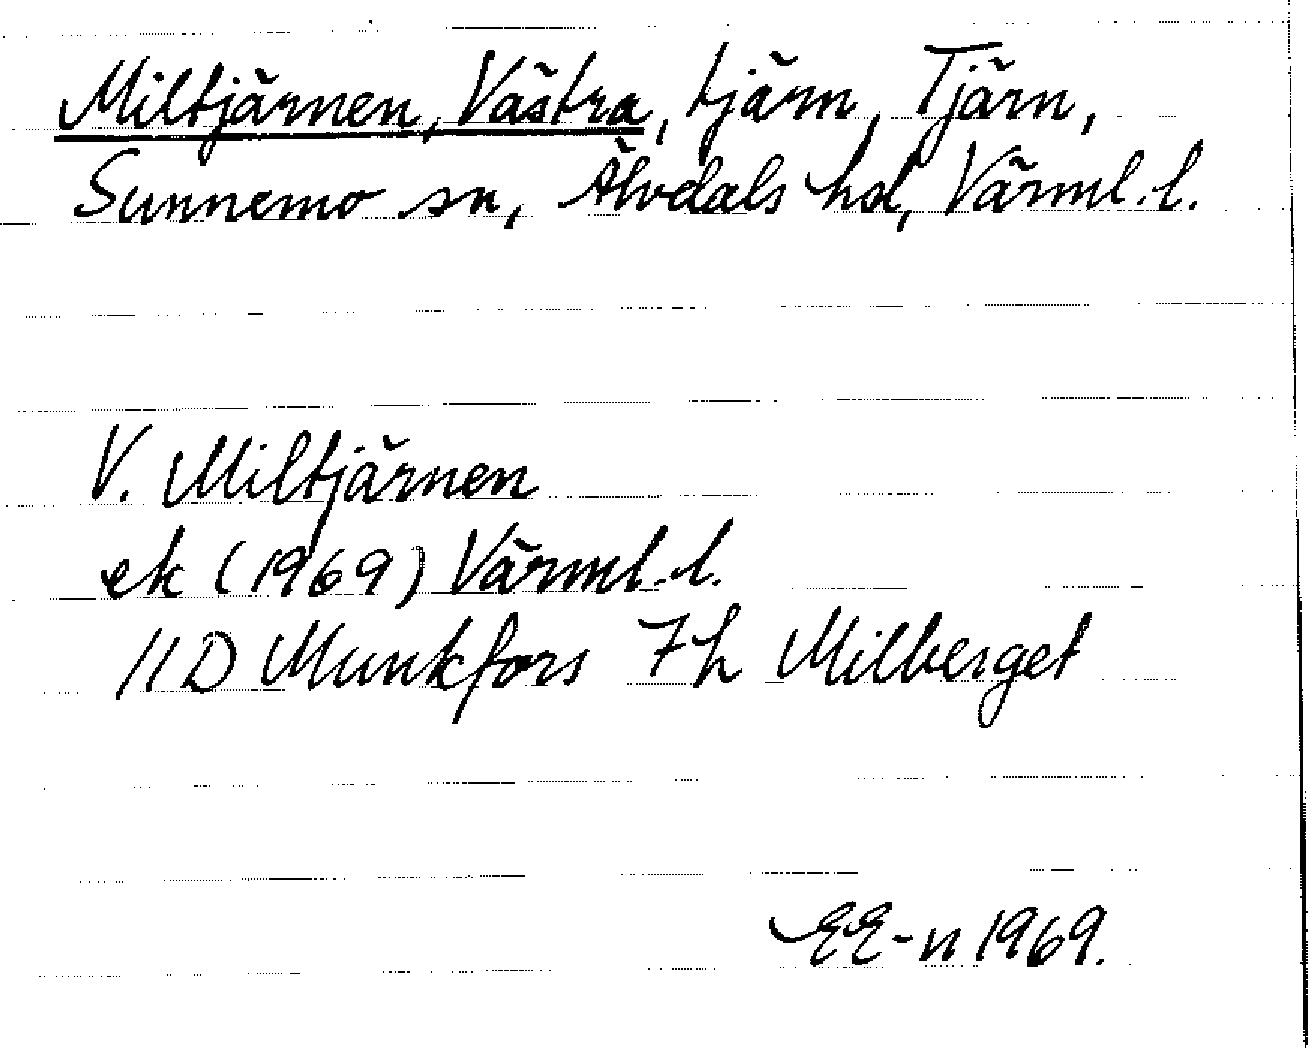 Miltjärnen, Västra, tjärn, Tjärn,
Sunnemo sn, Älvdals hd, Värml. l.
V. Miltjärnen
ek (1969) Värml. l.
11D Munkfors 7h Milberget
EE-n 1969.